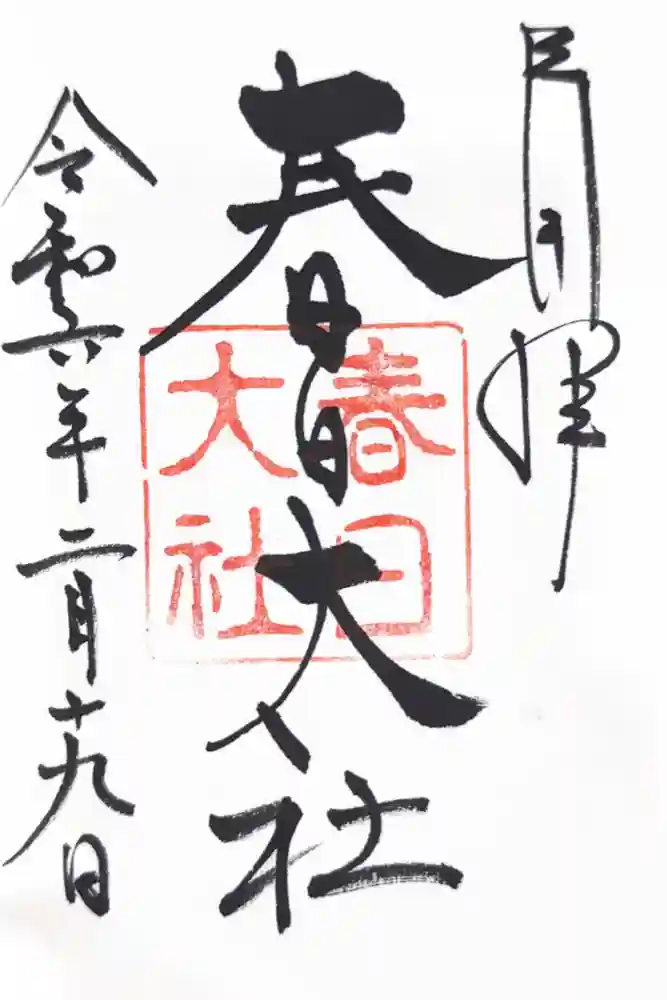 拝
春日大社
春日
大社
令和六年二月十九日